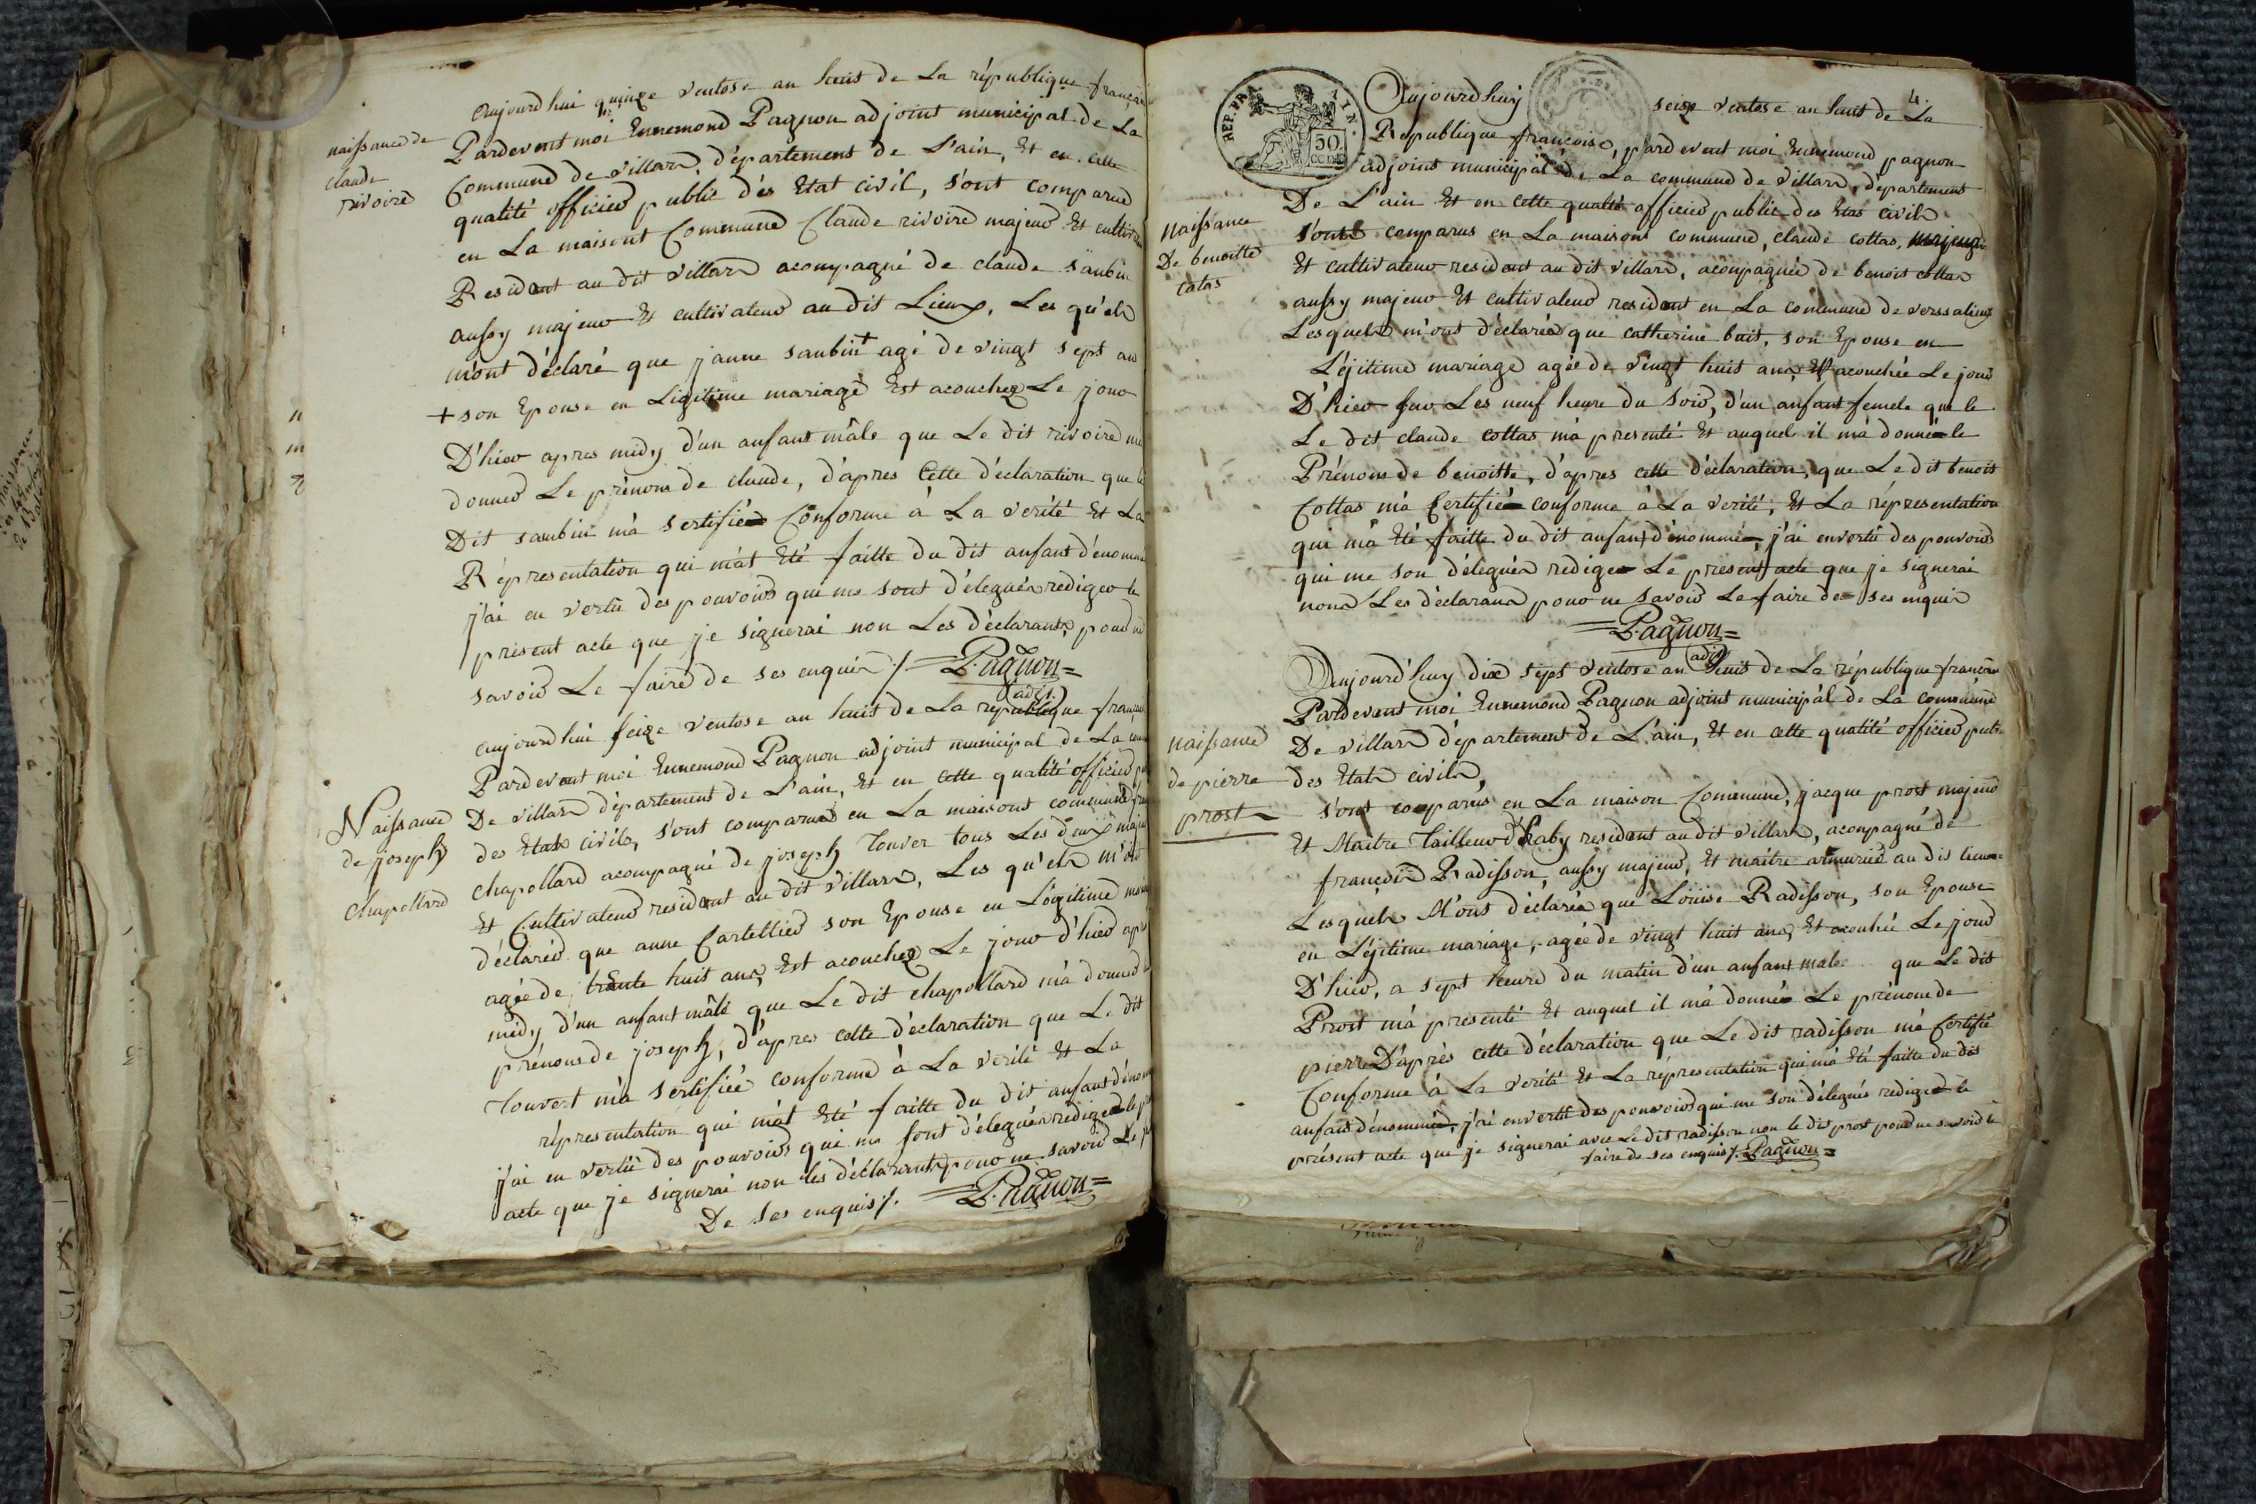 naissance de
claude
rivoire
aujourd'hui quinze ventose an huit de La république françai
Pardevent moi Ennemond Pagnon adjoint municipal de La
Commune de villard, département de L'ain, Et en cette
qualité officier public dés Etat civil, s'ont comparue
en La maisont Commune Claude rivoire majeur Et cultiva
Resident au dit villard acompagné de claude saubin
aussy majeur Et cultivateur au dit Lieux, Les qu'els
m'ont déclaré que janne saubint agé de vingt sept ans
+ son Epouse en Légitime mariage Est acouchez Le jour
D'hier apres midy d'un anfant mâle que Le dit rivoire ma
donner Le prénom de claude, d'apres Cette déclaration que le
Dit saubin m'a sertifiée Conforme à La verité Et La
Répresentation qui m'at Eté faitte du dit anfant dénommé
j'ai en vertû des pouvoirs qui me sont délegués rediger le
présent acte que je signerai non Les déclarants, pour ne
savoir Le faire de ses enquis ⁒ = P.agnon =
adj.
Naissance
de joseph
chapollard
aujourd'hui seize ventose an huit de La republique françai
Pardevent moi Ennemond Pagnon adjoint municipal de La com
De villard département de L'ain, Et en cette qualité officier pu
des Etats civils, s'ont comparus en La maisont commune
chapollard acompagné de joseph Touver tous Les deux maje
Et Cultivateur resident au dit villard, Les qu'els m'ont
déclarés que anne Cartellier son Epouse en Légitime mari
agée de trante huit ans, Est acouchez Le jour d'hier apr
midy d'un anfant mâle que Le dit chapollard m'a donner
prénom de joseph, d'apres cette déclaration que Le dit
Touvert m'a sertifiée conforme à La verité Et La
répresentation qui m'at Eté faitte du dit anfant dénom
j'ai en vertû des pouvoirs qui me sont délegués rediger le pr
acte que je signerai non les déclarants pour ne savoir Le fa
De ses enquis ⁒ = P.agnon =
REP. FRA. AIN.
50
CENT
4.
Naissance
De benoitte
catas
Aujourd'huy seize ventose an huit de La
République françoise, pardevent moi Ennemond pagnon
adjoint municipal de La commune de villard, département
De L'ain Et en cette qualité officier public des Etas civils
s'ont comparus en La maison commune, claude cottas, majeur
Et cultivateur resident au dit villard, acompagnée de benoit cottas
aussy majeur Et cultivateur resident en La commune de verssalieux
Lesquels m'ont déclarés que catherine buit, son Epouse en
Léjitime mariage agée de vingt huit ans, Est acouchée Le jour
D'hier sur Les neuf heure du soir, d'un anfant femele que le
Le dit claude cottas, m'a presenté Et auquel il m'a donnée le
Prénom de benoitte, d'apres cette déclaration, que Le dit benoit
Cottas m'a Certifiée conforme à La verité, Et La répresentation
qui m'a Eté faitte du dit anfant dénommée, j'ai envertû des pouvoirs
qui me son délegués rediger Le present acte que je signerai
nond Les déclarans pour ne savoir Le faire de ses enquis
= P.agnon =
adj.
naissance
de pierre
prost
Aujourd'huy dix sept ventose an huit de La république françoise
Pardevent moi Ennemond Pagnon adjoint municipal de La commune
De villard département de L'ain, Et en cette qualité officier publi
des Etats civils,
s'ont comparus en La maison Commune, jacque prost majeur
Et Maitre Tailleur d'haby resident au dit villard, acompagné de
françois Radisson, aussy majeur, Et maitre armurier au dit lieux
Lesquels M'ont déclarés que Loüise Radisson, son Epouse
en Léjitime mariage, agée de vingt huit ans, Et acouhée Le jour
D'hier, a sept heure du matin d'un anfant male que Le dit
Prost m'a presenté Et auquel il m'a donnée Le prénom de
pierre D'après cette déclaration que Le dit radisson m'a Certifié
Conforme à La verité Et La répresentation qui m'a Eté faitte du dit
anfant dénommée, j'ai envertû des pouvoirs qui me son délegués rediger le
présent acte que je signerai avec Le dit radisson non le dit prost pour ne savoir le
faire de ses enquis ⁒ Pagnon =